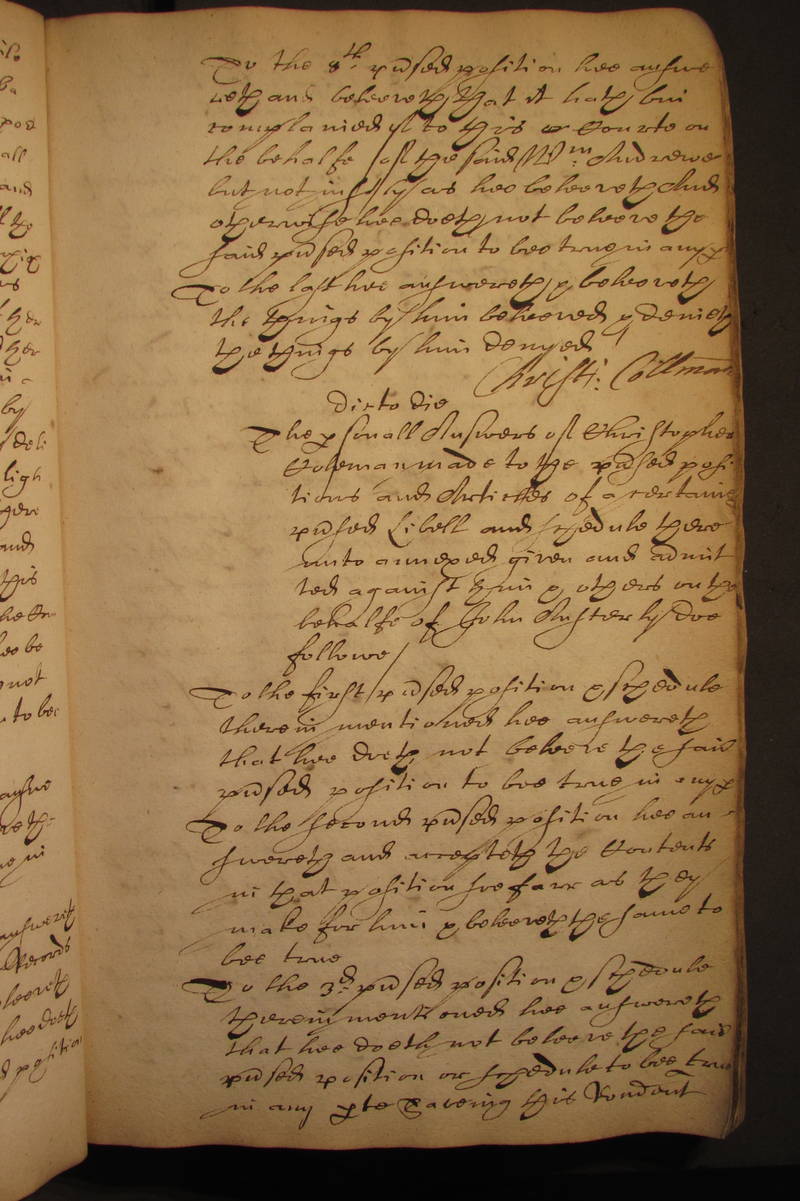 To the 8th. p̱dsed position hee answe
reth and beleeveth that it hath bin
complanied of to this Courte on
the behalfe of the said Wm: Andrewe
but not justly as hee beleeveth And
otherwise hee doeth not beleeve the
said p̱dsed position to bee true in any p̱
To the last hee answereth & beleeveth
the things by him beleeved & denieth
the things by him denyed
Christ: Collman
Dicto die
The p̱sonall Answers of Christopher
Coleman made to the p̱dsed posi
tions and Articles of a certaine
p̱dsed Libell and schedule there
unto annexed given and admit
ted against him & others on the
behalfe of John Austerlys doe
followe /
To the first p̱dsed position & schedule
therein mentioned hee answereth
that hee doeth not beleeve the said
p̱dsed position to bee true in any p̱
To the second p̱dsed position hee an
swereth and accepteth the Contents
in that position soe farr as they
make for him & beleeveth the same to
bee true
To the 3d. p̱dsed position & schedule
therein mentioned hee answereth
that hee doeth not beleeve the said
p̱dsed position or schedule to bee true
in any p̱te Saveing this Rondent
ith
pos
all
and
ther
by
deli
ligh
gere
and
this
hee be
not
to bee
answe
in
answereth
Records
beleeveth
hee doeth
position